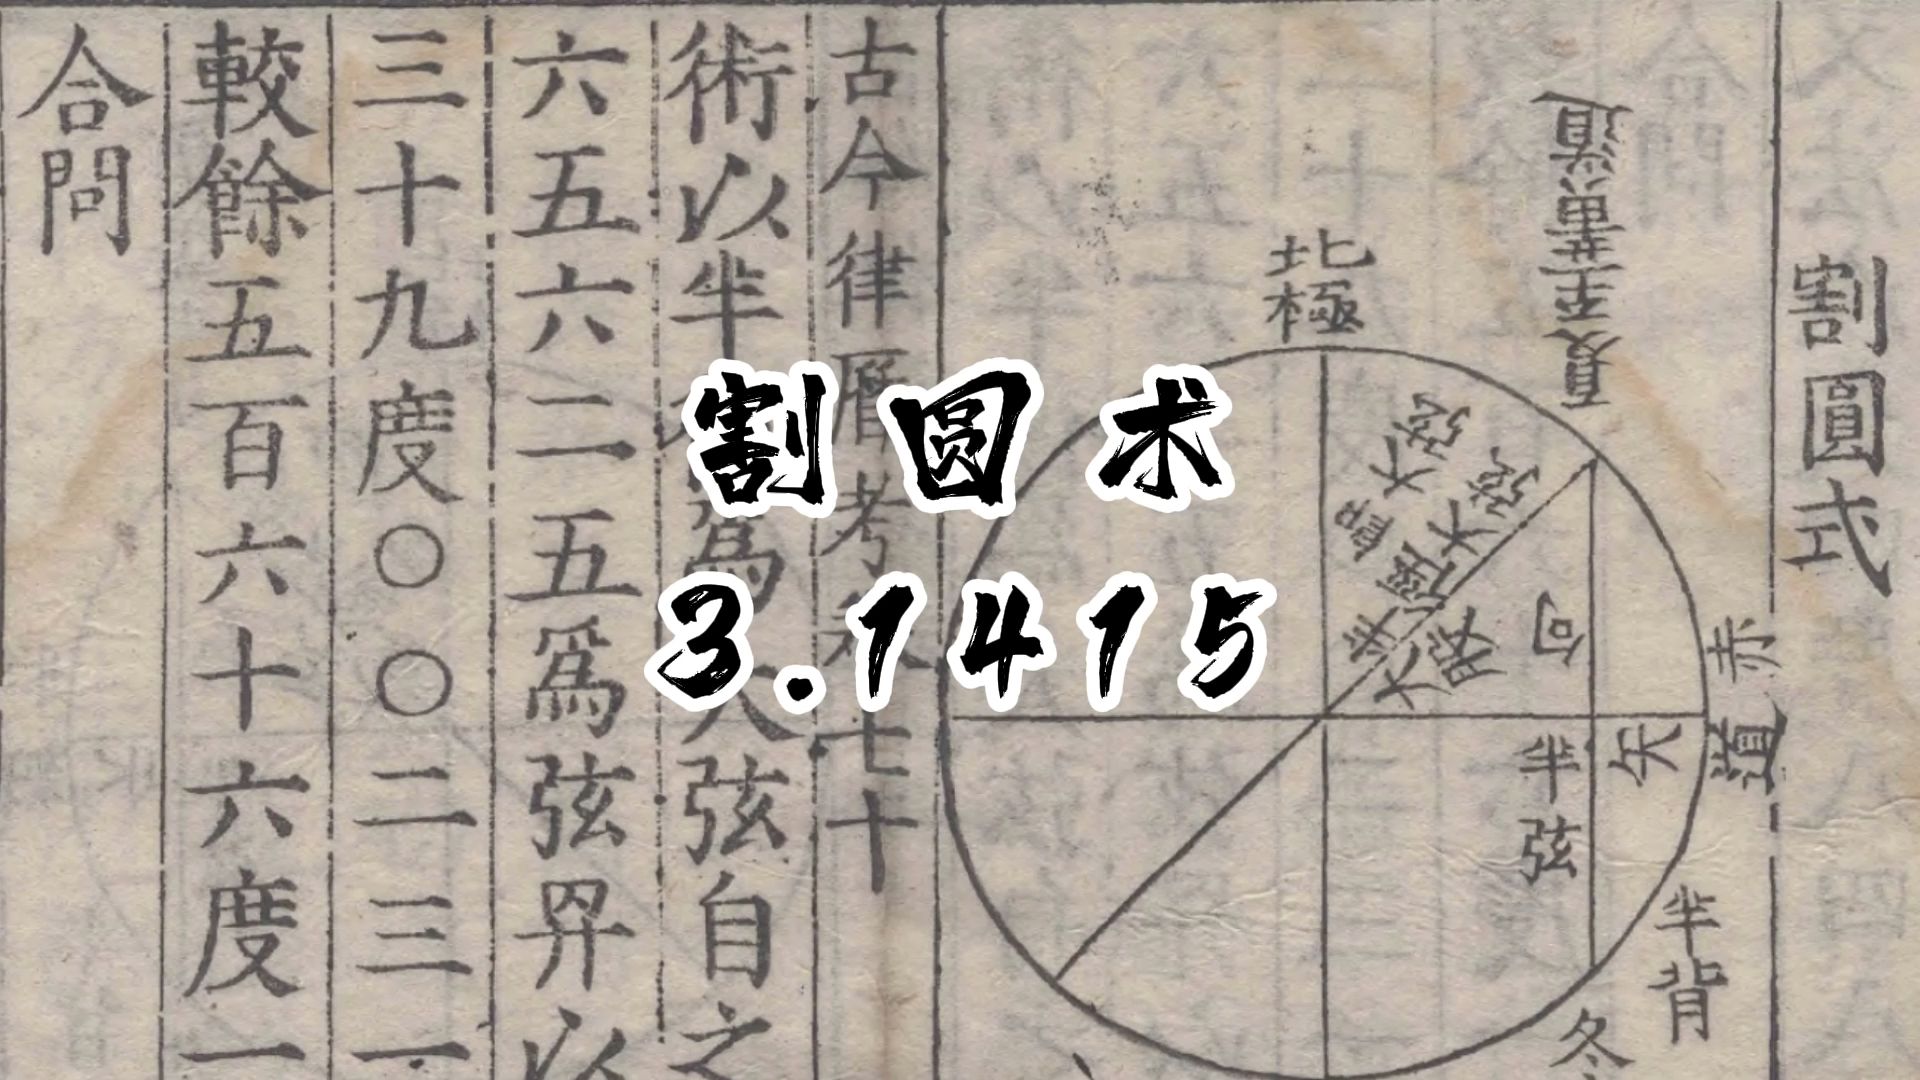 割圆术
3.1415
割圓式
夏至黄道
北極
赤道
矢
半弦
半背
冬
古今律曆考卷七十
術以半
為大弦自之
六五六二五爲弦昇以
三十九度〇〇二三一
較餘五百六十六度一
合問